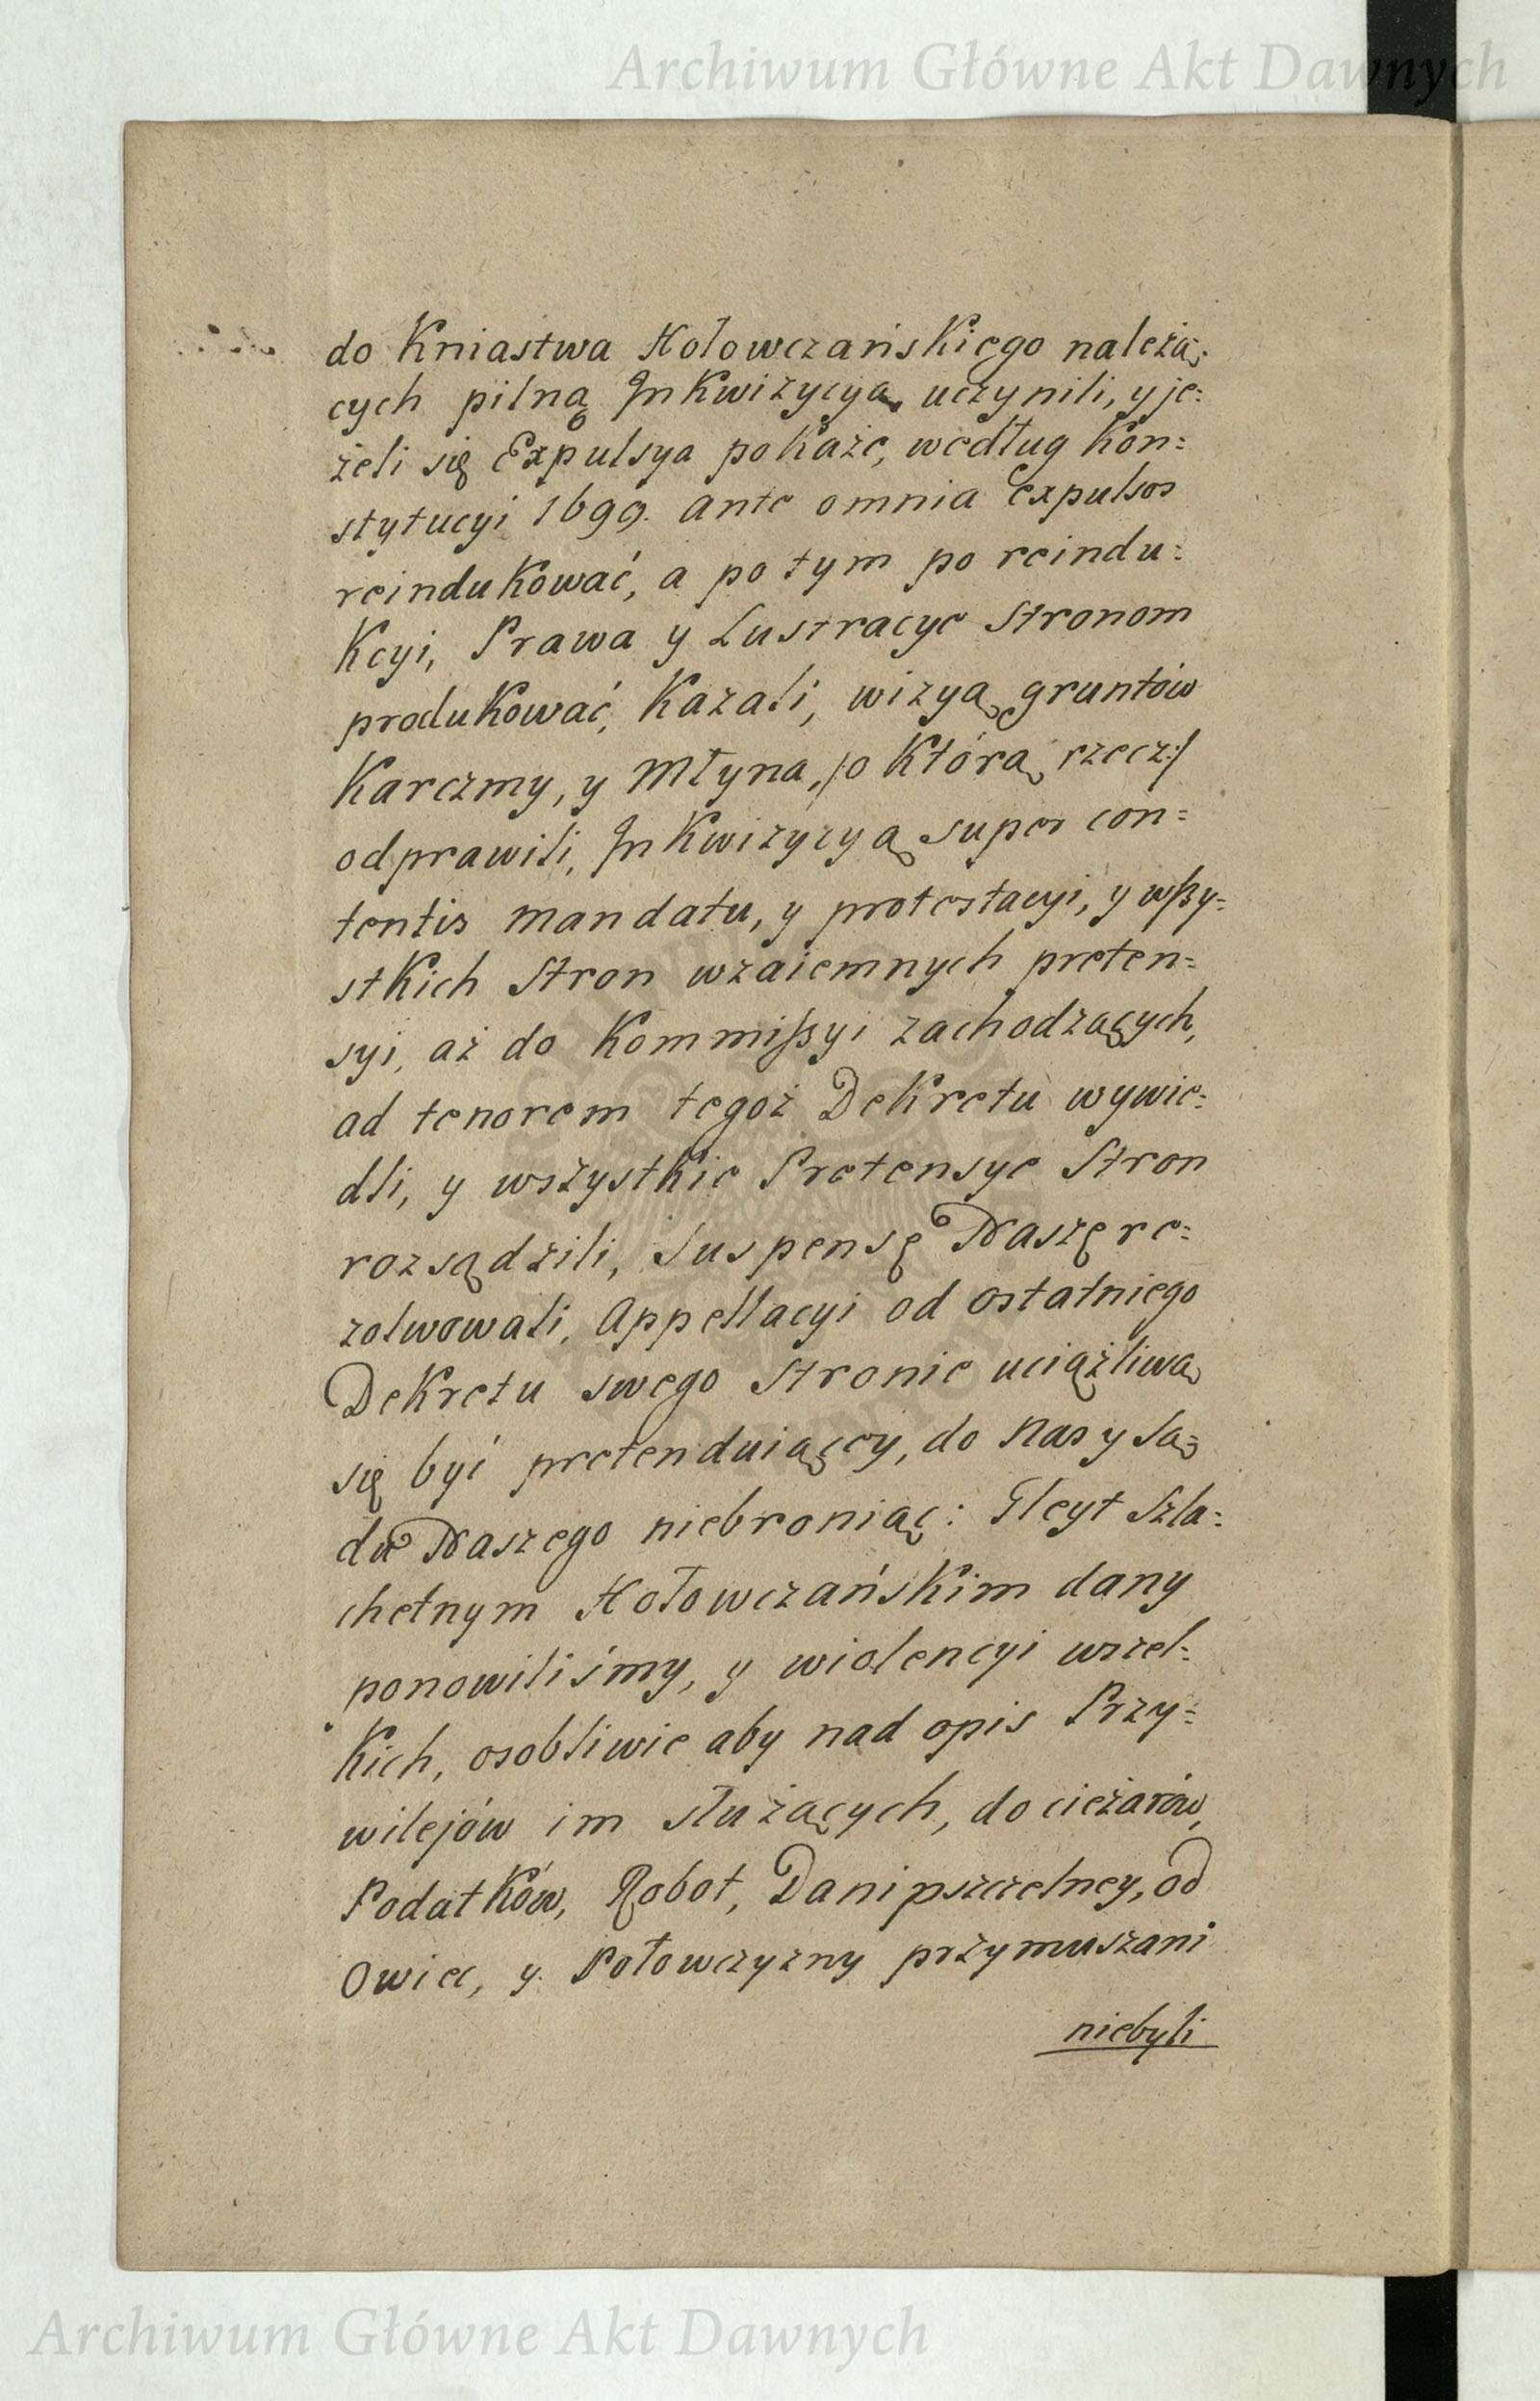 Archiwum Główne Akt Dawnych
do Kniastwa Hołowczańskiego należą=
cych pilną Inkwizycyą uczynili, y je=
żeli się Expulsya pokaże, według Kon=
stytucyi 1699. ante omnia expulsos
reindukować, a po tym po reindu=
kcyi, Prawa y Lustracye Stronom
produkować, kazali, wizyą gruntów
Karczmy, y Młyna, /:o którą rzecz:/
odprawili, Inkwizycyą super con=
tentis mandatu, y protestacyi, y wßy=
stkich Stron wzaiemnych preten=
syi, aż do Kommißyi zachodzących,
ad tenorem tegoż Dekretu wywie=
dli, y wszystkie Pretensye Stron
rozsądzili, Suspensę Naszę re=
zolwowali, Appellacyi od ostatniego
Dekretu swego Stronie uciążliwą
się być pretenduiącey, do Nas y Są=
du Naszego niebroniąc: Gleyt Szla=
chetnym Hołowczańskim dany
ponowiliśmy, y wiolencyi wszel=
kich, osobliwie aby nad opis Przy=
wilejów im służących, do ciężarów,
Podatków, Robot, Dani pszczelney, od
Owiec, y Połowczyzny przymuszani
niebyli
Archiwum Główne Akt Dawnych